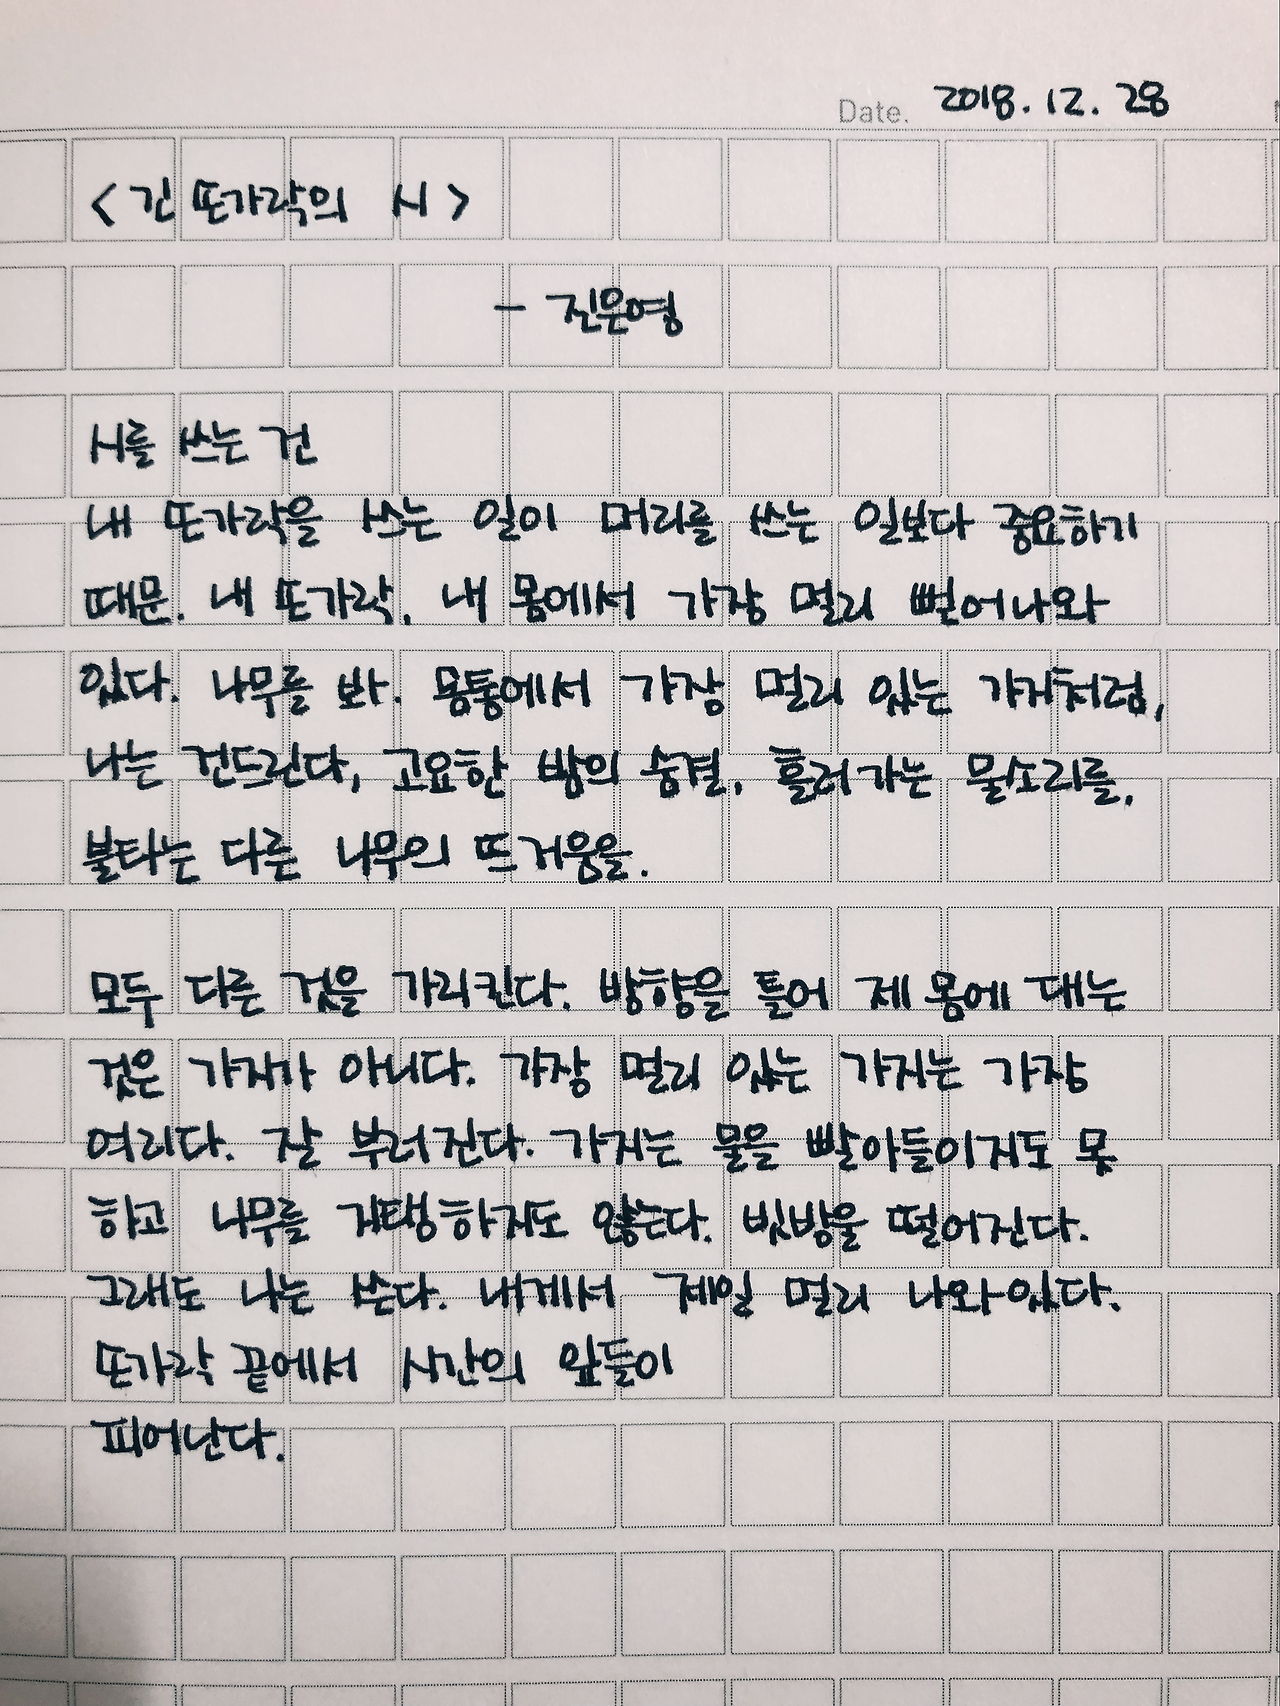 Date. 2018. 12. 28
<긴 또가락의 시>
- 진은영
시를 쓰는 건
내 또가락을 쓰는 일이 머리를 쓰는 일보다 중요하기
때문. 내 또가락, 내 몸에서 가장 멀리 뻗어나와
있다. 나무를 봐. 몸통에서 가장 멀리 있는 가지처럼,
나는 건드린다, 고요한 밤의 숨결, 흘러가는 물소리를,
불타는 다른 나무의 뜨거움을.
모두 다른 것을 가리킨다. 방향을 틀어 제 몸에 대는
것은 가지가 아니다. 가장 멀리 있는 가지는 가장
여리다. 잘 부러진다. 가지는 물을 빨아들이지도 못
하고 나무를 지탱하지도 않는다. 빗방울 떨어진다.
그래도 나는 쓴다. 내게서 제일 멀리 나와있다.
또가락 끝에서 시간의 잎들이
피어난다.